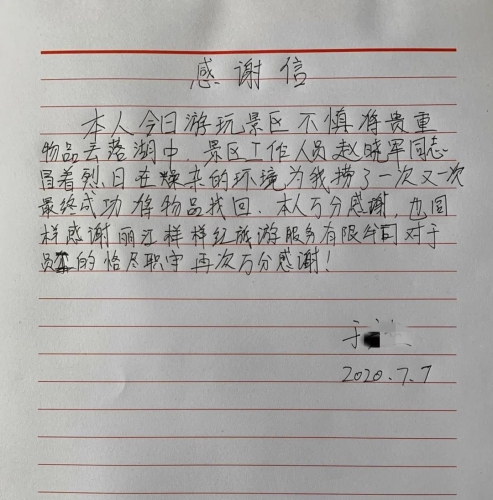 感谢信
本人今日游玩景区不慎将贵重
物品丢落湖中，景区工作人员赵晓军同志
冒着烈日在燥杂的环境为我捞了一次又一次
最终成功将物品找回．本人万分感谢，也同
样感谢丽江样样红旅游服务有限公司对于
员工的恪尽职守 再次万分感谢！
于
2020.7.7